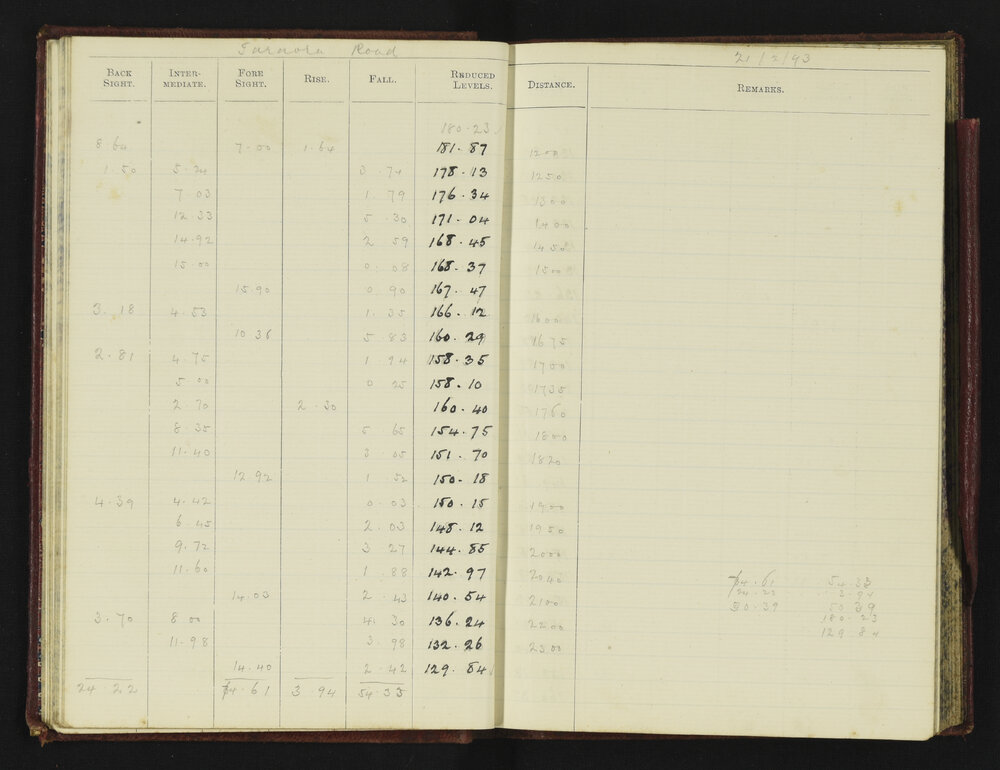 Road 21/2/93
BACK SIGHT. INTER-MEDIATE. FORE SIGHT. RISE. FALL. REDUCED LEVELS. DISTANCE. REMARKS.
180.23
8.64 7.00 1.64 181.87 1200
1.50 5.24 3.74 178.13 1250
7.03 1.79 176.34 1300
12.33 5.30 171.04 1400
14.92 2.59 168.45 1450
15.00 0.08 168.37 1500
15.90 0.90 167.47
3.18 4.53 1.35 166.12 1600
10.36 5.83 160.29 1675
2.81 4.75 1.94 158.35 1700
5.00 0.25 158.10 1735
2.70 2.30 160.40 1760
8.35 5.65 154.75 1800
11.40 3.05 151.70 1820
12.92 1.52 150.18
4.39 4.42 0.03 150.15 1900
6.45 2.03 148.12 1950
9.72 3.27 144.85 2000
11.60 1.88 142.97 2040
14.03 2.43 140.54 2100
3.70 8.00 4.30 136.24 2200
11.98 3.98 132.26 2300
14.40 2.42 129.84
24.22 74.61 3.94 54.33
74.61 54.33
24.22 3.94
50.39 50.39
180.23
129.84